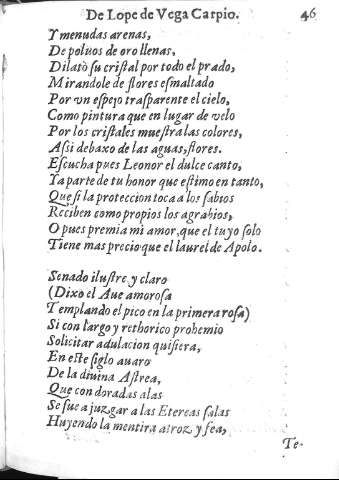 De Lope de Vega Carpio. 46
Y menudas arenas,
De poluos de oro llenas,
Dilatò ſu criſtal por todo el prado,
Mirandole de flores eſmaltado
Por vn eſpejo traſparente el cielo,
Como pintura que en lugar de velo
Por los criſtales mueſtra las colores,
Aſsi debaxo de las aguas, flores.
Eſcucha pues Leonor el dulce canto,
Ya parte de tu honor que eſtimo en tanto,
Que ſi la proteccion toca a los ſabios
Reciben como propios los agrabios,
O pues premia mi amor, que el tuyo ſolo
Tiene mas precio que el laurel de Apolo.
Senado iluſtre y claro
(Dixo el Aue amoroſa
Templando el pico en la primera roſa)
Si con largo y rethorico prohemio
Solicitar adulacion quiſiera,
En eſte ſiglo auaro
De la diuina Aſtrea,
Que con doradas alas
Se fue a juzgar a las Etereas ſalas
Huyendo la mentira atroz y fea,
Te-